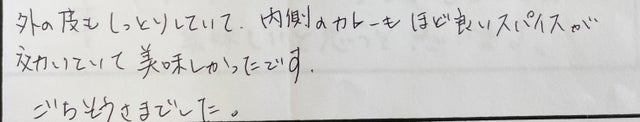 外の皮もしっとりしていて、内側のカレーもほど良いスパイスが
効いていて美味しかったです.
ごちそうさまでした。